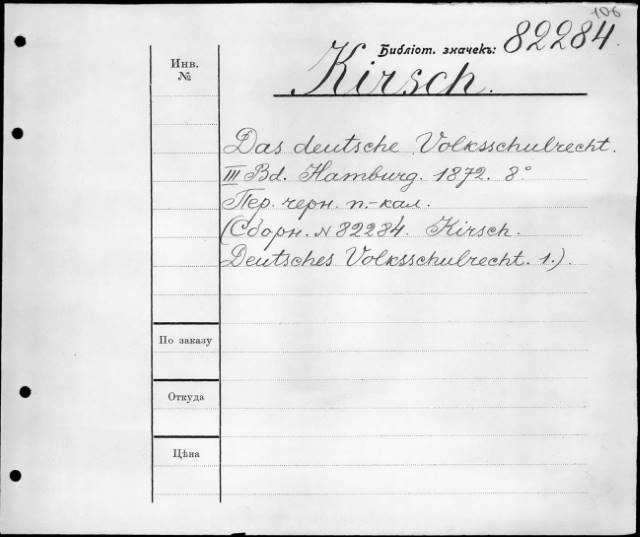 106
Библіот. значекъ: 82284.
Инв.
№
Kirsch.
Das deutsche Volksschulrecht.
III Bd. Hamburg. 1872. 8°
Пер. черн. п.-кал.
(Сборн. № 82284. Kirsch.
Deutsches Volksschulrecht. 1.).
По заказу
Откуда
Цѣна